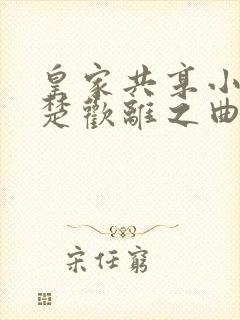 皇家共享小
楚歡離之曲
宋任窮